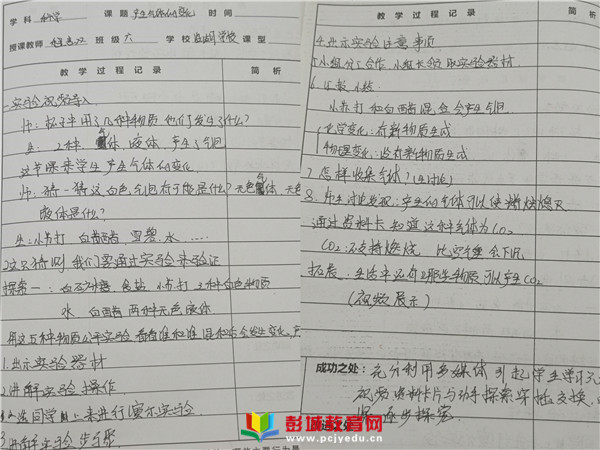 学科 科学 课题 产生气体的变化 时间
授课教师 班级 六 学校 学校 课型
教学过程记录 简析
一、实验视频导入
师:杯子里用了几种物质 他们发生了什么?
生:2种 体 液体 产生气泡
这节课来学生产生气体的变化
师:猜一猜这白色 有可能是什么?无色 体 无色
液体是什么?
生:小苏打 白醋 雪碧 水 ……
2.这只是猜测 我们要通过实验来验证
探索一: 食盐 小苏打 3种白色物质
水 白醋 两种无色液体
用这五种物质 实验 看看谁和谁混合会发生变化
1.出示实验器材
2.讲解实验操作
同学上来进行演示实验
3.讲解实验步骤
教学过程记录 简析
4.出示实验注意事项
5.小组分工合作 小组长领取实验器材
6.汇报 小结
小苏打和白醋混合会产生气泡
化学变化:有新物质生成
物理变化:没有新物质生成
7.怎样收集气体?(生讨论)
8.师生讨论发现:产生的气体可以使蜡烛熄灭
通过资料卡知道这种气体为CO₂
CO₂:不支持燃烧 比空气重 会下沉
拓展:生活中还有哪些物质可以产生CO₂
(视频展示)
成功之处:充分利用多媒体 引起学生学习
视频 资料卡片与动手探索实验交换
改进之处 逐步探究
彭城教育网
www.pcjyedu.cn